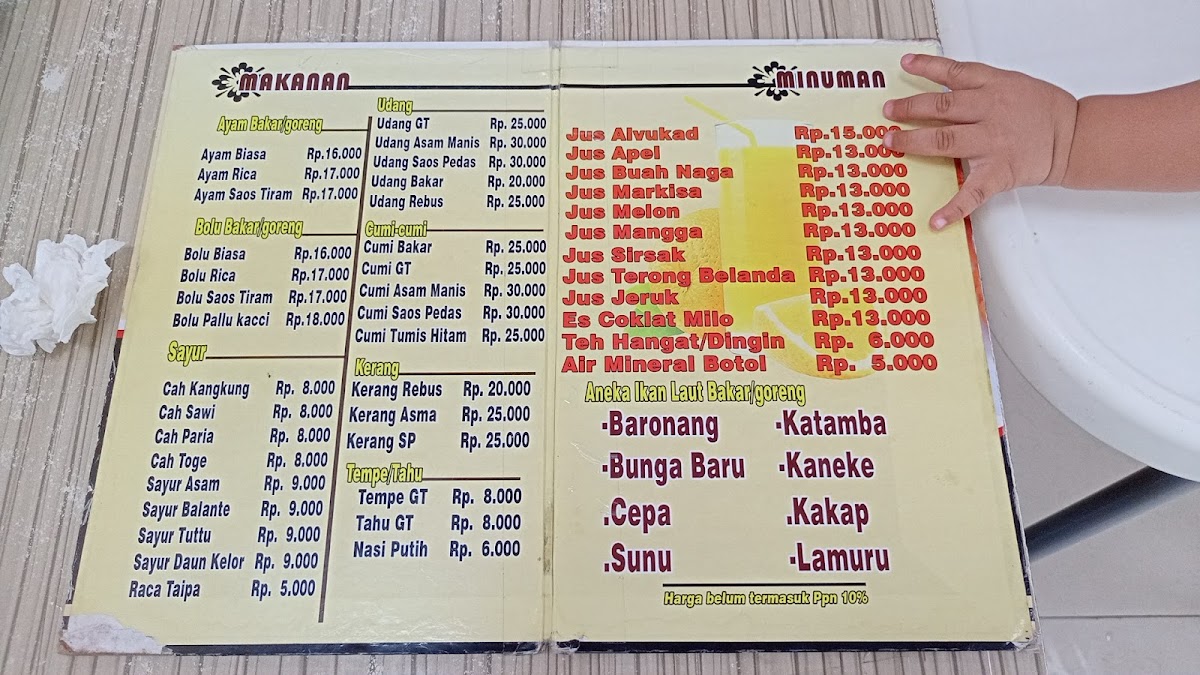 MAKANAN
Ayam Bakar/goreng
Ayam Biasa Rp.16.000
Ayam Rica Rp.17.000
Ayam Saos Tiram Rp.17.000
Bolu Bakar/goreng
Bolu Biasa Rp.16.000
Bolu Rica Rp.17.000
Bolu Saos Tiram Rp.17.000
Bolu Pallu kacci Rp.18.000
Sayur
Cah Kangkung Rp. 8.000
Cah Sawi Rp. 8.000
Cah Paria Rp. 8.000
Cah Toge Rp. 8.000
Sayur Asam Rp. 9.000
Sayur Balante Rp. 9.000
Sayur Tuttu Rp. 9.000
Sayur Daun Kelor Rp. 9.000
Raca Taipa Rp. 5.000
Udang
Udang GT Rp. 25.000
Udang Asam Manis Rp. 30.000
Udang Saos Pedas Rp. 30.000
Udang Bakar Rp. 20.000
Udang Rebus Rp. 25.000
Cumi-cumi
Cumi Bakar Rp. 25.000
Cumi GT Rp. 25.000
Cumi Asam Manis Rp. 30.000
Cumi Saos Pedas Rp. 30.000
Cumi Tumis Hitam Rp. 25.000
Kerang
Kerang Rebus Rp. 20.000
Kerang Asma Rp. 25.000
Kerang SP Rp. 25.000
Tempe/Tahu
Tempe GT Rp. 8.000
Tahu GT Rp. 8.000
Nasi Putih Rp. 6.000
MINUMAN
Jus Alvukad Rp.15.000
Jus Apel Rp.13.000
Jus Buah Naga Rp.13.000
Jus Markisa Rp.13.000
Jus Melon Rp.13.000
Jus Mangga Rp.13.000
Jus Sirsak Rp.13.000
Jus Terong Belanda Rp.13.000
Jus Jeruk Rp.13.000
Es Coklat Milo Rp.13.000
Teh Hangat/Dingin Rp. 6.000
Air Mineral Botol Rp. 5.000
Aneka Ikan Laut Bakar/goreng
-Baronang -Katamba
-Bunga Baru -Kaneke
.Cepa .Kakap
.Sunu -Lamuru
Harga belum termasuk Ppn 10%